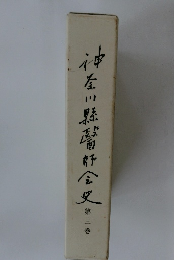 神奈川縣醫師会史
第二巻